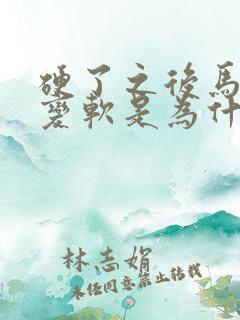 硬了之後馬
變軟是為什
林志娟
未任同意禁止转载